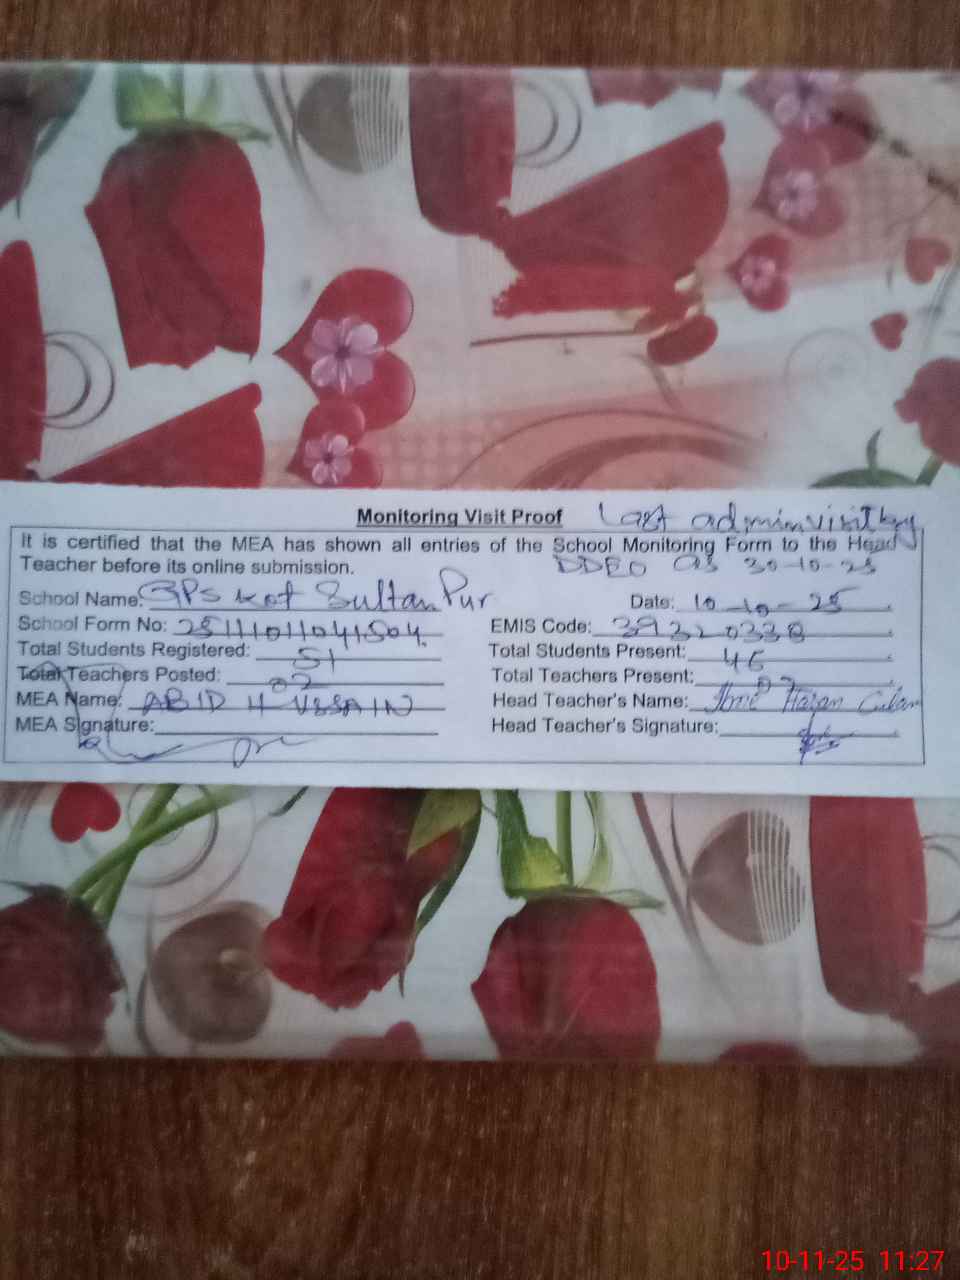 Monitoring Visit Proof Last admin visit by
It is certified that the MEA has shown all entries of the School Monitoring Form to the Head
Teacher before its online submission. DDEO as 30-10-25
School Name: GPS Kot Sultan Pur Date: 10-10-25
School Form No: 25111011041504 EMIS Code: 39320338
Total Students Registered: 51 Total Students Present: 46
Total Teachers Posted: 02 Total Teachers Present: 02
MEA Name: ABID HUSSAIN Head Teacher's Name: Hasan
MEA Signature: Head Teacher's Signature:
10-11-25 11:27